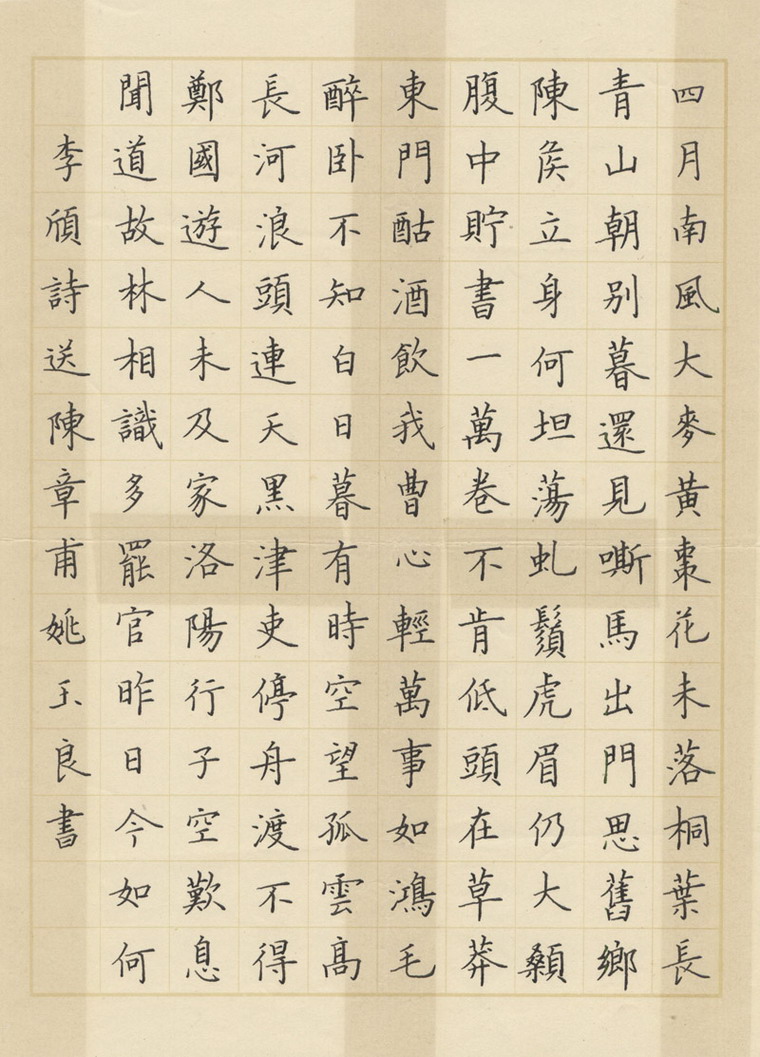 四月南風大麥黃棗花未落桐葉長
青山朝別暮還見嘶馬出門思舊鄉
陳矦立身何坦蕩虬鬚虎眉仍大顙
腹中貯書一萬卷不肯低頭在草莽
東門酤酒飲我曹心輕萬事如鴻毛
醉卧不知白日暮有時空望孤雲髙
長河浪頭連天黑津吏停舟渡不得
鄭國遊人未及家洛陽行子空歎息
聞道故林相識多罷官昨日今如何
李頎詩送陳章甫姚玉良書